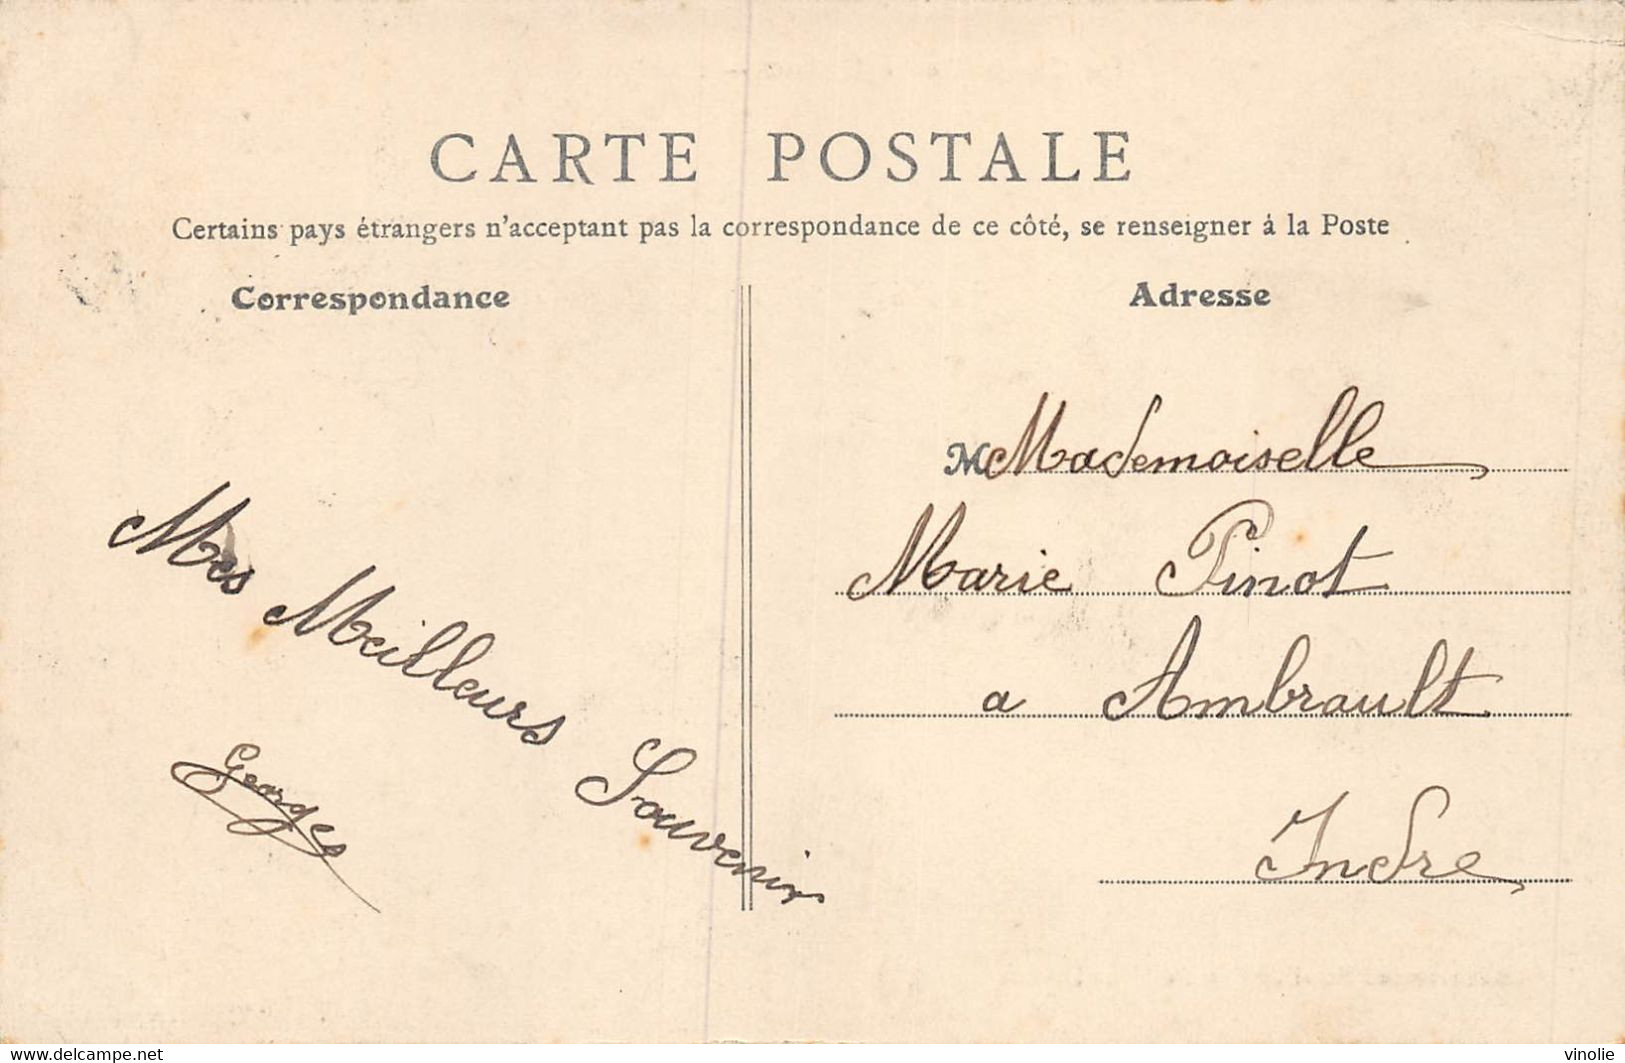 CARTE POSTALE
Certains pays étrangers n'acceptant pas la correspondance de ce côté, se renseigner à la Poste
Correspondance
Mes Meilleurs Souvenirs
Georges
Adresse
M Mademoiselle
Marie Pinot
a Ambrault
Indre
delcampe.net
vinolie